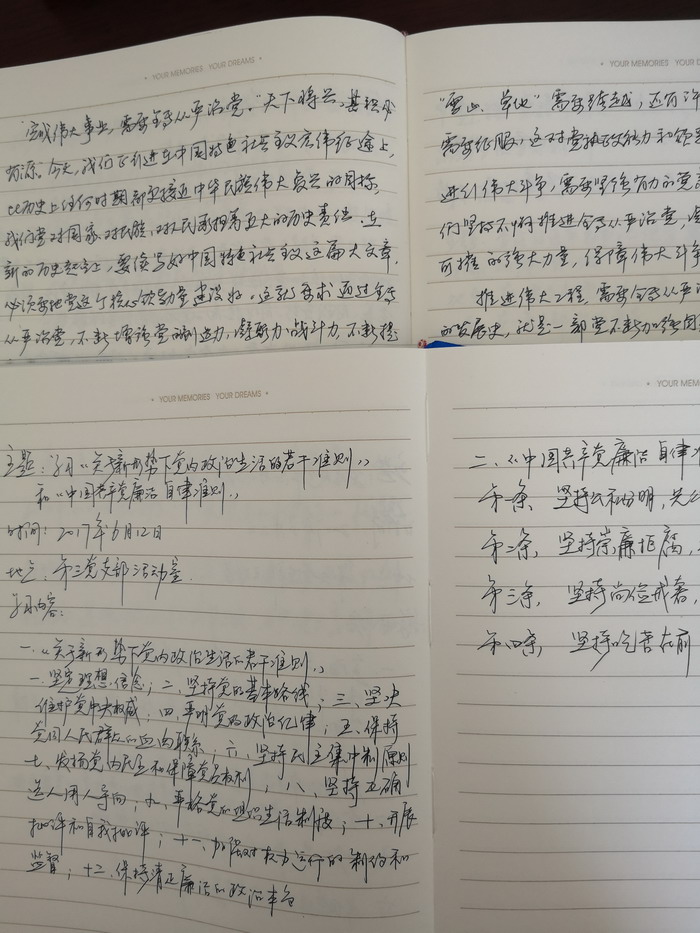 YOUR MEMORIES YOUR DREAMS
完成伟大事业,需要全面从严治党。"天下将兴,其积必
有源。今天,我们正行进在中国特色社会主义宏伟征途上,
比历史上任何时期都更接近中华民族伟大复兴的目标,
我们党对国家、对民族、对人民承担着重大的历史责任。在
新的历史起点上,要续写好中国特色社会主义这篇大文章,
必须要把党这个核心领导力量建设好。这就要求通过全面
从严治党,不断增强党的创造力、凝聚力、战斗力,不断提
YOUR MEMORIES YOUR DREAMS
"雪山、草地"需要跨越,还有许
需要征服,这对党执政能力和领导
进行伟大斗争,需要坚强有力的党
们坚持不懈推进全面从严治党,
可摧的强大力量,保障伟大斗争
推进伟大工程,需要全面从严治
的发展史,就是一部党不断加强自
YOUR MEMORIES YOUR DREAMS
主题:学习《关于新形势下党内政治生活的若干准则》
和《中国共产党廉洁自律准则》
时间:2017年6月12日
地点:第三党支部活动室
学习内容:
一、《关于新形势下党内政治生活的若干准则》
一、坚定理想信念;二、坚持党的基本路线;三、坚决
维护党中央权威;四、严明党的政治纪律;五、保持
党同人民群众的血肉联系;六、坚持民主集中制原则
七、发扬党内民主和保障党员权利;八、坚持正确
选人用人导向;九、严格党的组织生活制度;十、开展
批评和自我批评;十一、加强对权力运行的制约和
监督;十二、保持清正廉洁的政治本色
YOUR MEM
二、《中国共产党廉洁自律准
第一条、坚持公私分明,先公
第二条、坚持崇廉拒腐,
第三条、坚持尚俭戒奢,
第四条、坚持吃苦在前